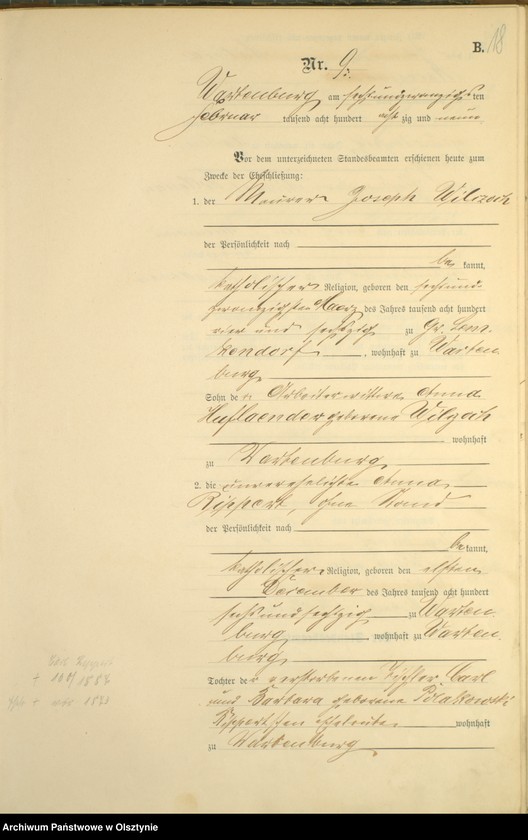 B. 18
Nr. 9.
Wartenburg am sechsundzwanzigsten
Februar tausend acht hundert achtzig und neun
Vor dem unterzeichneten Standesbeamten erschienen heute zum
Zwecke der Eheschließung:
1. der Maurer Joseph Wilzoch
der Persönlichkeit nach
be kannt,
katholischer Religion, geboren den sechsund
zwanzigsten Maerz des Jahres tausend acht hundert
vier und sechszig zu Gr. Lem
kendorf, wohnhaft zu Warten
burg
Sohn der Arbeiterwittwe Anna
Huflaender geborene Wilzoch
wohnhaft
zu Wartenburg
2. die unverehelichte Anna
Rippert, ohne Stand
der Persönlichkeit nach
be kannt,
katholischer Religion, geboren den elften
December des Jahres tausend acht hundert
sechsundsechszig zu Warten
burg wohnhaft zu Warten
burg
Tochter der verstorbenen Tischler Carl
und Barbara geborene Polakowski
Rippertschen Eheleute wohnhaft
zu Wartenburg
Archiwum Państwowe w Olsztynie